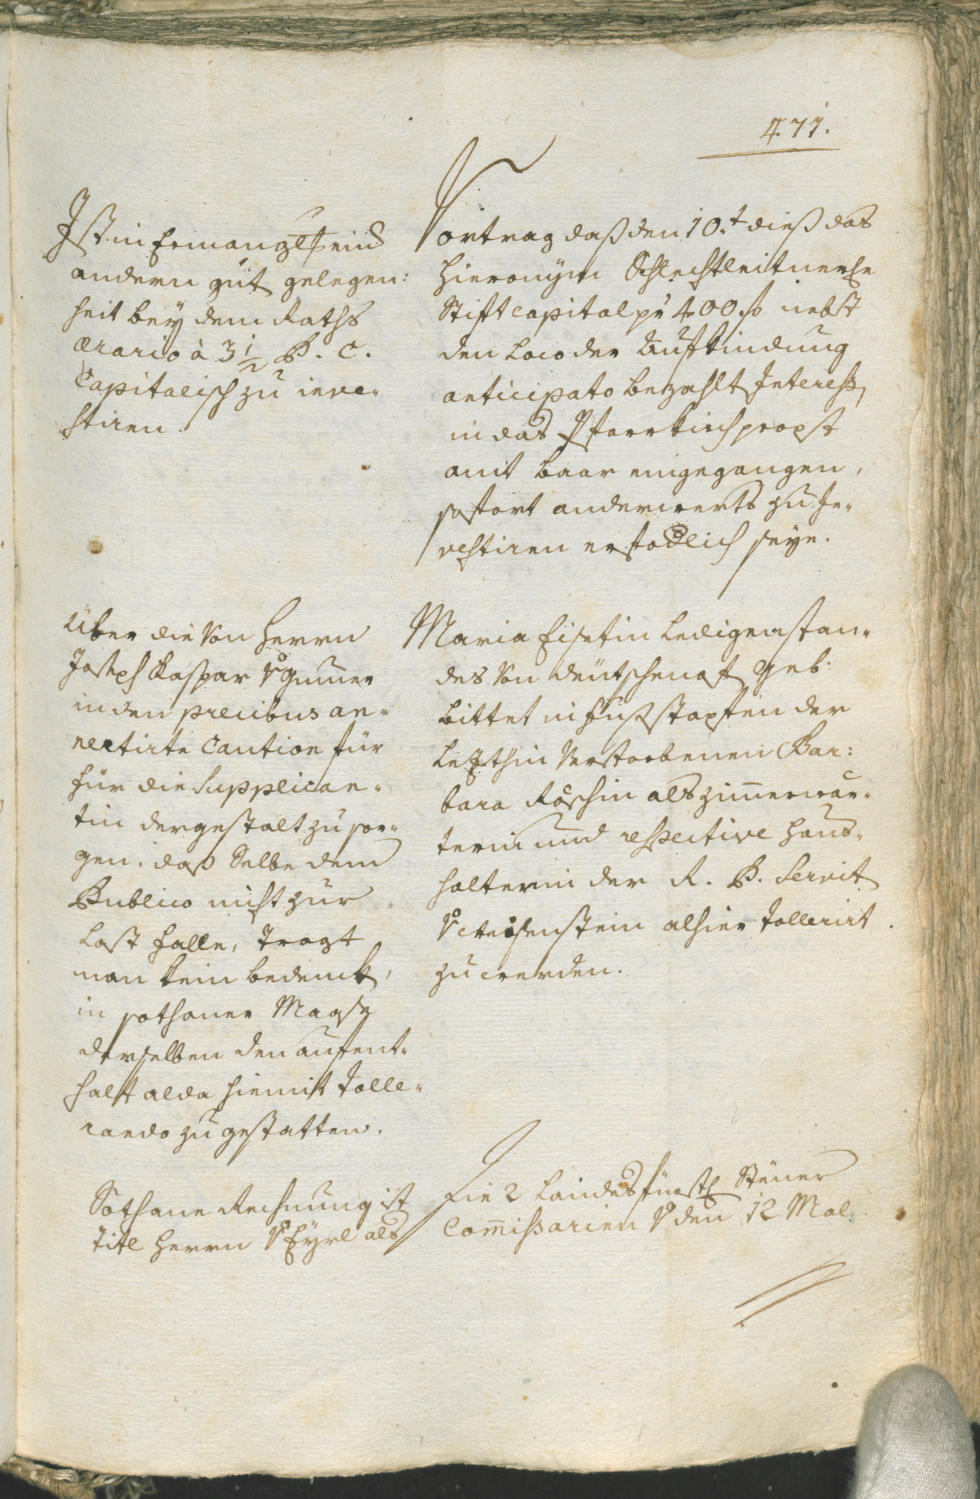 471.
Ist in Ermanglung eines
andern gut gelegen:
heit bey dem Raths
ærario à 3 1/2 P. C.
Capitalisch zu inve-
stiren.
Vortrag daß den 10.t dieß das
Hieronÿm Schlechtleitnerische
Stiftcapital pr 400 f nebst
den loco der Aufkindung
anticipato bezahlt Interesse
in das Pfarrkirchpropst
amt baar eingegangen,
sofort anderwerts zu In-
vestiren erfodlich seye.
Über die von Herrn
Joseph Caspar v Gumer
in den precibus an-
nectirte Caution für
für die Supplican-
tin dergestalt zu sor-
gen, daß Selbe dem
Publico nicht zur
Last falle, tragt
man kein bedenk,
in sothaner Maaß
derselben den aufent-
halt alda hiemit tolle-
rando zu gestatten.
Maria Eisetin Ledigenstan-
des von deütschenof geb:
bittet in fußstapfen der
letzthin verstorbenen Bar:
bara Röschin als zimmerwar-
terin und respective Haus-
halterin der R. P. Servit
v Weisenstein alhier tollerirt
zu werden.
Sothane Rechnung ist
titl Herrn v Eyrl als
Die 2 Landsfürstl Steuer
Commissarien v den 12 Mal